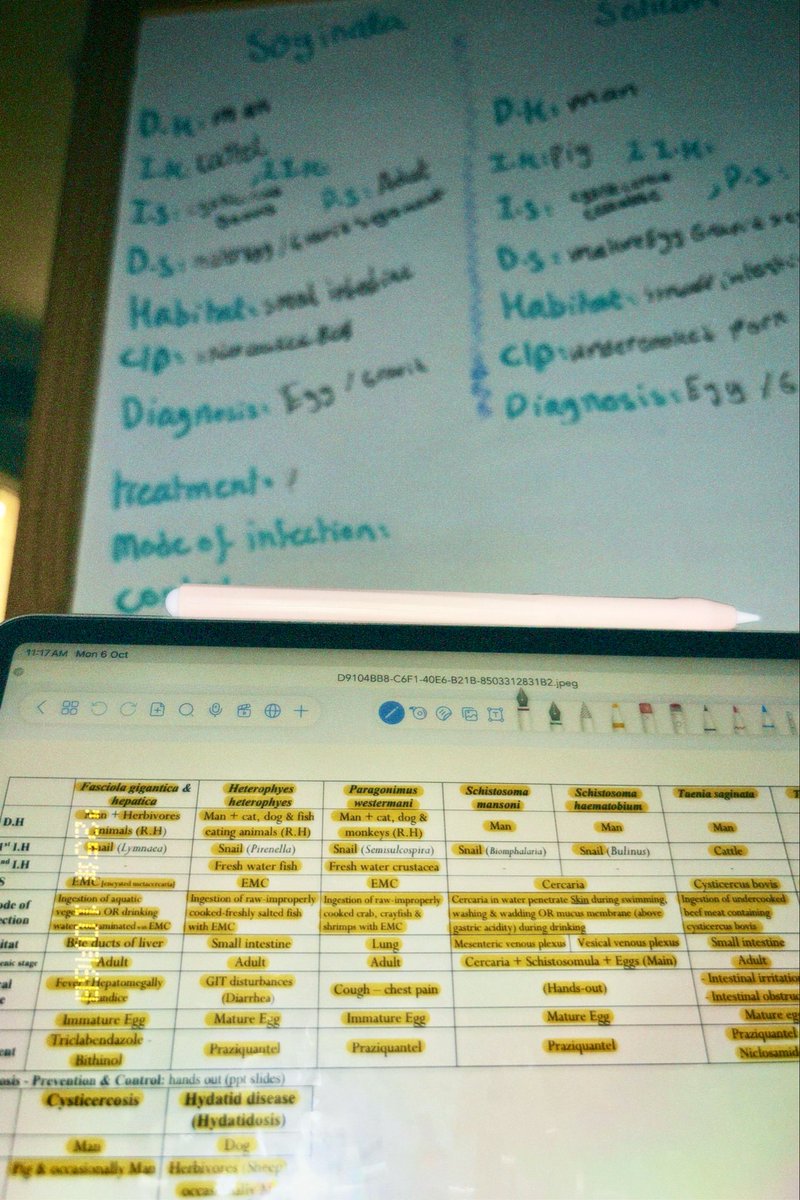 Soginata
D.H: man
I.H: Cattel
I.S:
D.S: Adult
D.S:
Habitat: small intestine
C/P:
Diagnosis: Egg / Gravid
treatment:
Mode of infection:
D.H: man
I.H: Pig
I.S:
, D.S:
D.S: mature Egg
Habitat: small intestin
C/P: undercooked Pork
Diagnosis: Egg / G
11:17 AM Mon 6 Oct
D9104BB8-C6F1-40E6-B21B-8503312831B2.jpeg
Fasciola gigantica & hepatica Heterophyes heterophyes Paragonimus westermani Schistosoma mansoni Schistosoma haematobium Taenia saginata T
D.H Man + Herbivores animals (R.H) Man + cat, dog & fish eating animals (R.H) Man + cat, dog & monkeys (R.H) Man Man Man
1st I.H Snail (Lymnaea) Snail (Pirenella) Snail (Semisulcospira) Snail (Biomphalaria) Snail (Bulinus) Cattle
nd I.H Fresh water fish Fresh water crustacea
S EMC [encysted metacercaria] EMC EMC Cercaria Cysticercus bovis
ode of ection Ingestion of aquatic vegetables OR drinking water contaminated with EMC Ingestion of raw-improperly cooked-freshly salted fish with EMC Ingestion of raw-improperly cooked crab, crayfish & shrimps with EMC Cercaria in water penetrate Skin during swimming, washing & wadding OR mucus membrane (above gastric acidity) during drinking Ingestion of undercooked beef meat containing cysticercus bovis
itat Bile ducts of liver Small intestine Lung Mesenteric venous plexus Vesical venous plexus Small intestine
enic stage Adult Adult Adult Cercaria + Schistosomula + Eggs (Main) Adult
al e Fever Hepatomegally jaundice GIT disturbances (Diarrhea) Cough – chest pain (Hands-out) - Intestinal irritatio - Intestinal obstruc
Immature Egg Mature Egg Immature Egg Mature Egg Mature eg
ent Triclabendazole - Bithinol Praziquantel Praziquantel Praziquantel Praziquantel Niclosamid
osis - Prevention & Control: hands out (ppt slides)
Cysticercosis Hydatid disease (Hydatidosis)
Man Dog
Pig & occasionally Man Herbivores (Sheep